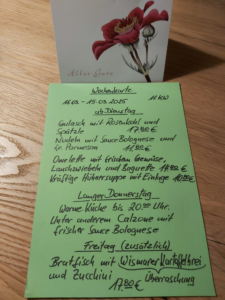 Alles Gute
Wochenkarte
11.03. - 15.03.2025 11 KW
ab Dienstag
Gulasch mit Rosenkohl und
Spätzle 17,80 €
Nudeln mit Sauce Bolognese und
ger. Parmesan
Omelette mit frischem Gemüse,
Lauchzwiebeln und Baguette
Kräftige Hühnersuppe mit Einlage
Langer Donnerstag
Warme Küche bis 20.00 Uhr.
Unter anderem Calzone mit
frischer Sauce Bolognese
Freitag (zusätzlich)
Bratfisch mit Wismarer Kartoffelbrei
und Zucchini Überraschung
17,80 €